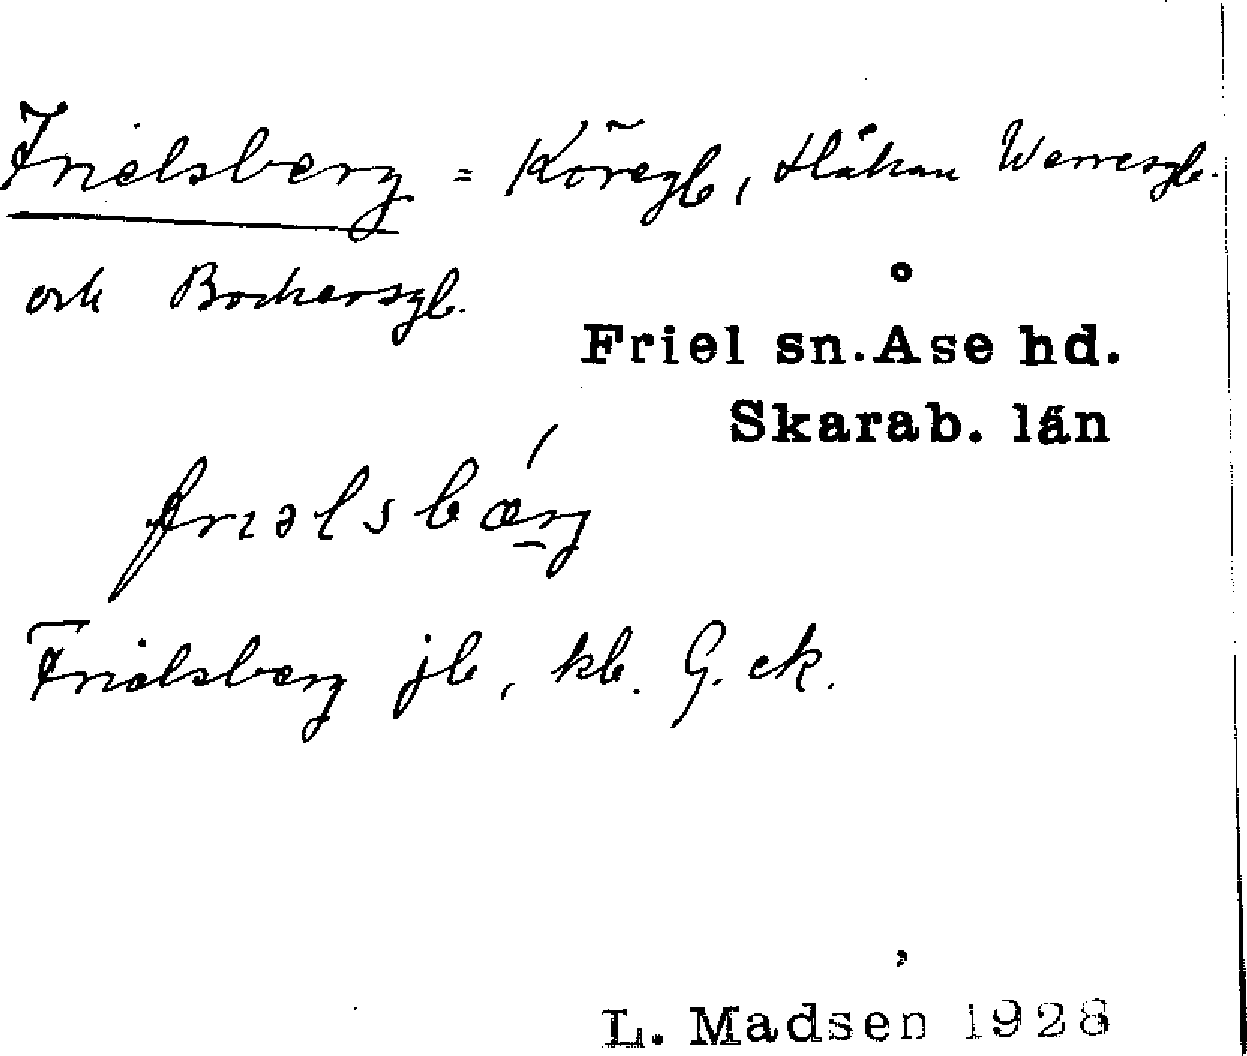 Frielsberg = Köregb, Håkan Warresgb.
och Bockarsgb.
Friel sn. Åse hd.
Skarab. län
friəlsbærg
Frielsberg jb, kb. G. ek.
L. Madsen 1928